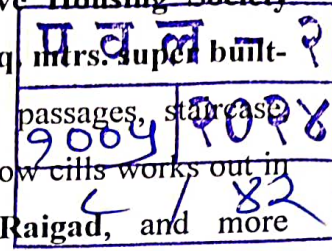 ve Housing Society
q. mtrs. super built-
प व ल - २
passages, staircase,
१००५ २०१४
ow cills works out in
८ / ४२
Raigad, and more